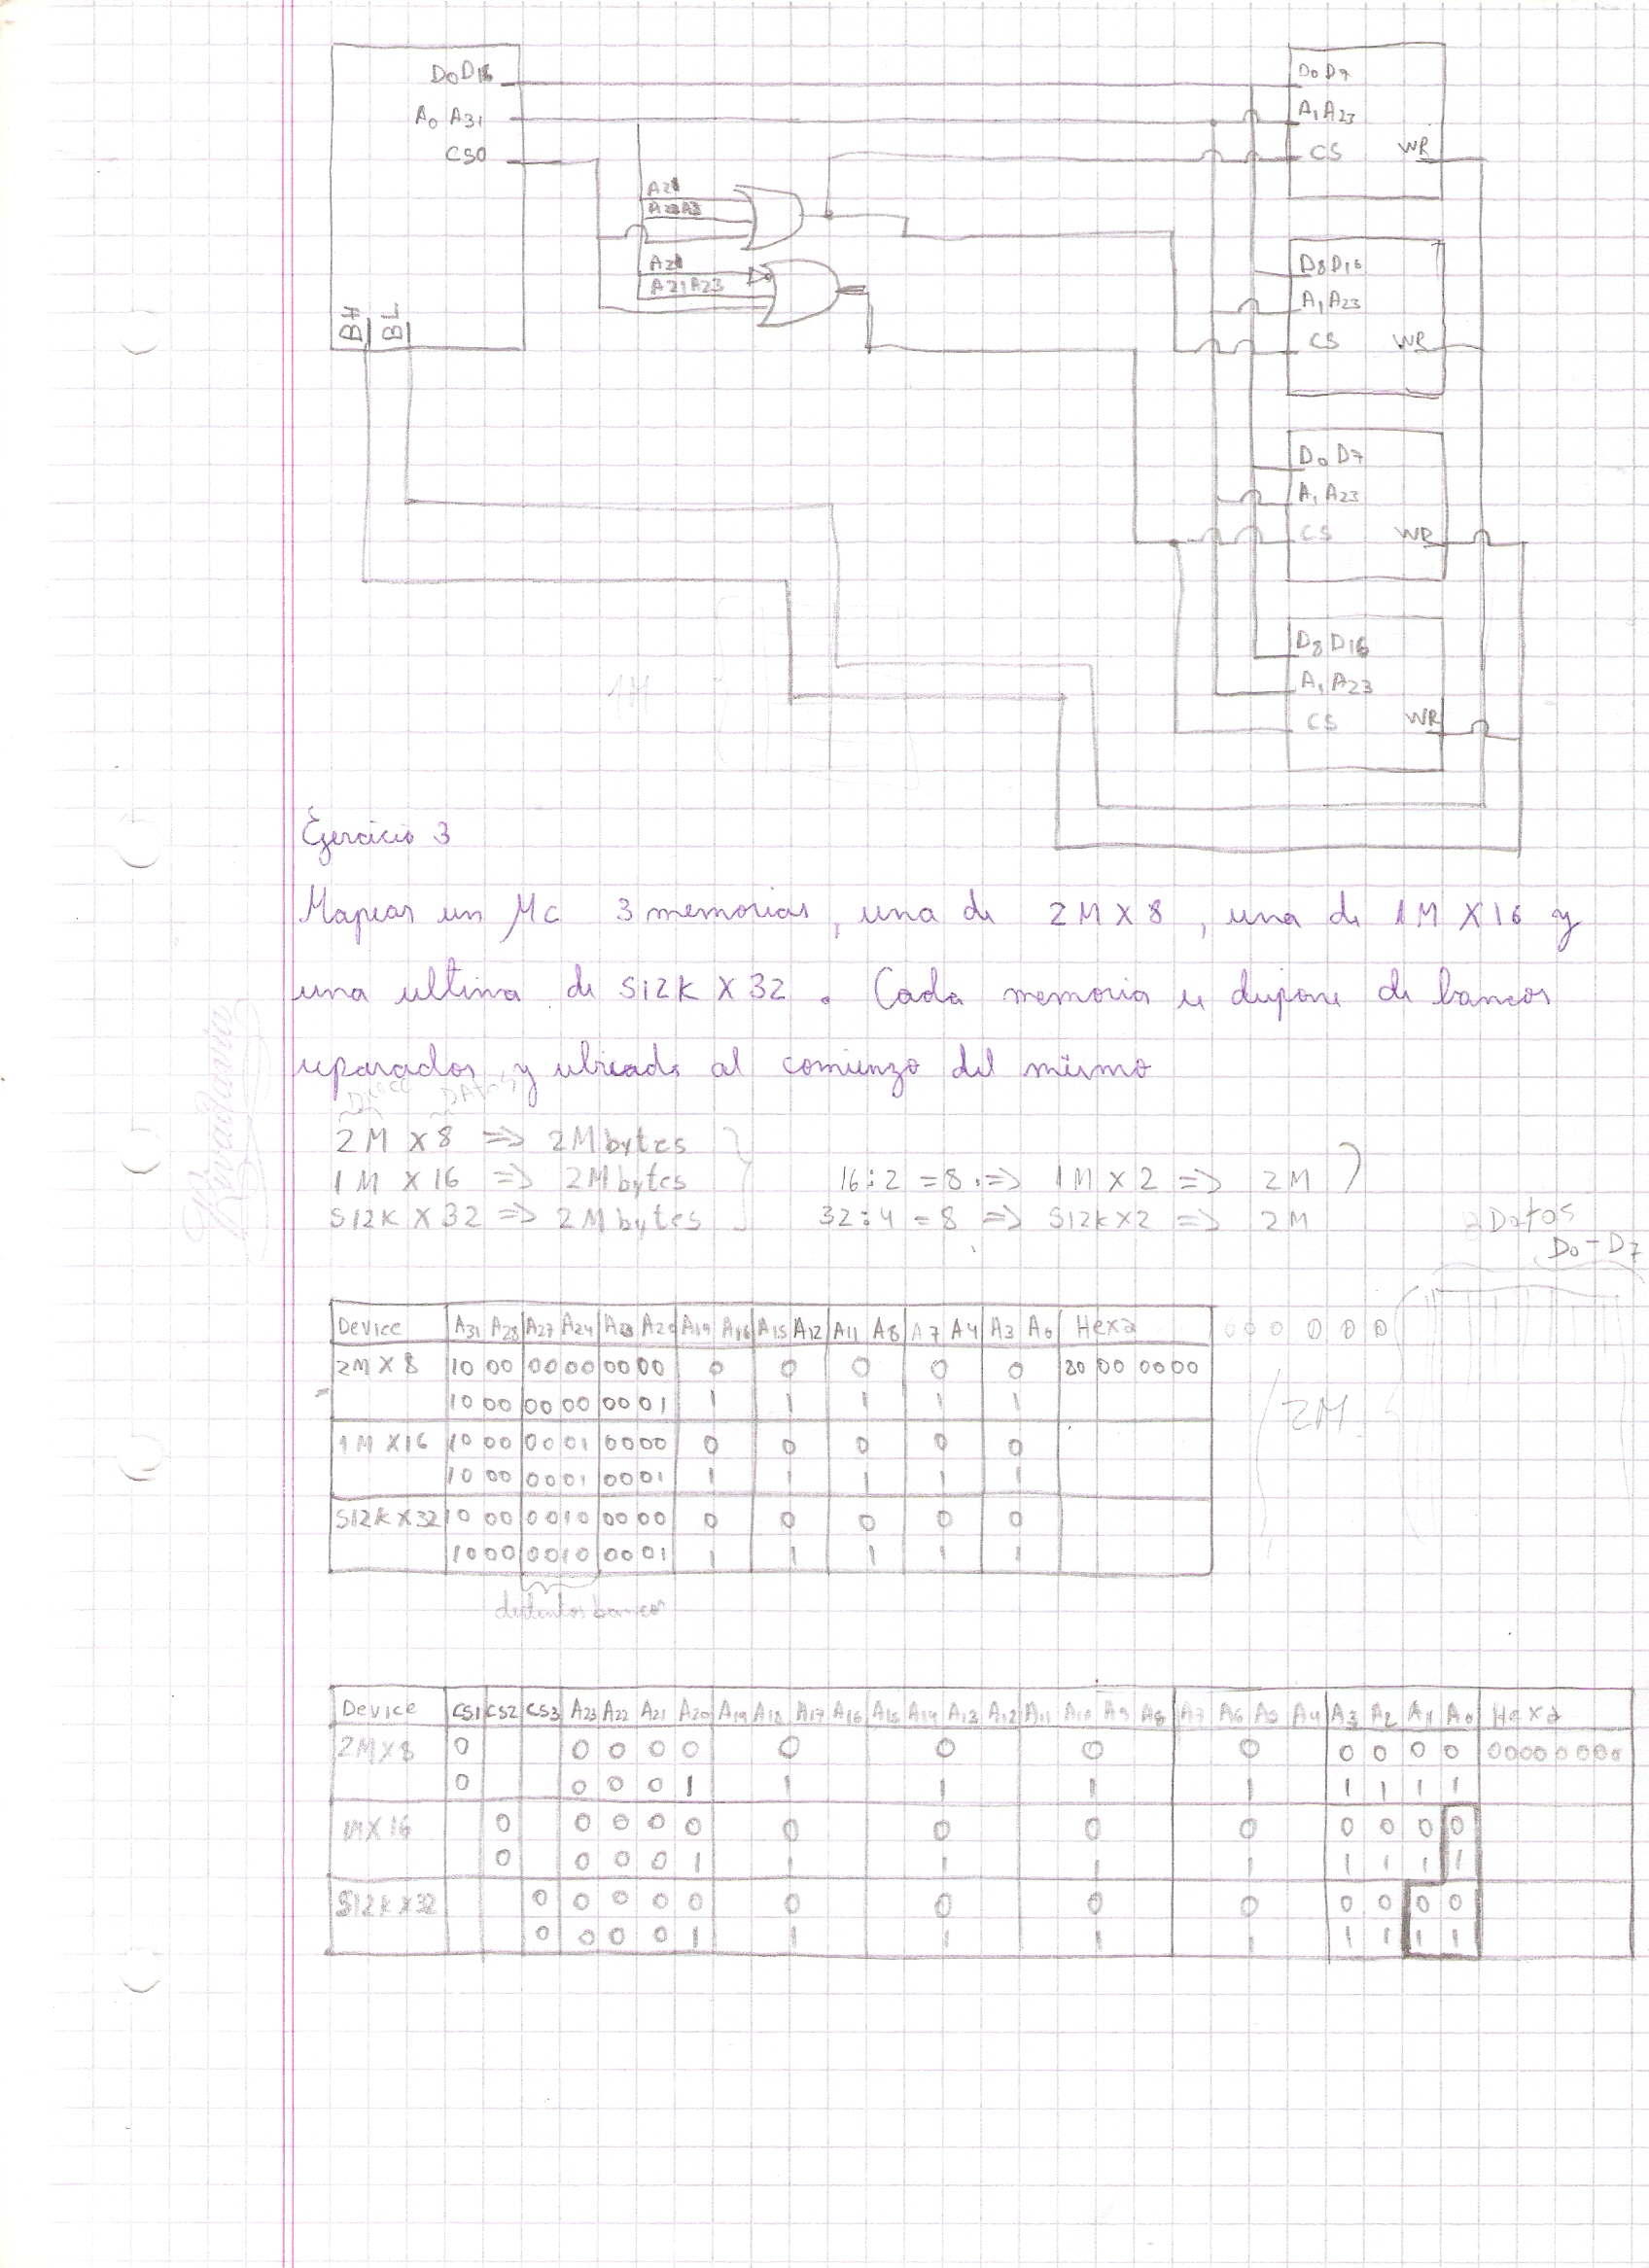 D0 D16
A0 A31
CS0
BH BL
A21
A21
A21 A23
D0 D7
A1 A23
CS WR
D8 D16
A1 A23
CS WR
D0 D7
A1 A23
CS WR
D8 D16
A1 A23
CS WR
1M
Ejercicio 3
Mapear un Mc 3 memorias, una de 2M X 8, una de 1M X 16 y
una ultima de 512K X 32. Cada memoria se dispone de bancos
separados y ubicado al comienzo del mismo
DATOS
2M X 8 => 2Mbytes
1M X 16 => 2Mbytes 16:2 = 8 => 1M X 2 => 2M
512K X 32 => 2Mbytes 32:4 = 8 => 512K X 2 => 2M
Datos
D0-D7
Device A31 A28 A27 A24 A23 A20 A19 A16 A15 A12 A11 A8 A7 A4 A3 A0 Hexa
2M X 8 10 00 00 00 00 00 0 0 0 0 0 80 00 00 00
10 00 00 00 00 01 1 1 1 1 1
1M X 16 10 00 00 01 00 00 0 0 0 0 0
10 00 00 01 00 01 1 1 1 1 1
512K X 32 10 00 00 10 00 00 0 0 0 0 0
10 00 00 10 00 01 1 1 1 1 1
distintos bancos
2M
Device CS1 CS2 CS3 A23 A22 A21 A20 A19 A18 A17 A16 A15 A14 A13 A12 A11 A10 A9 A8 A7 A6 A5 A4 A3 A2 A1 A0 Hexa
2M X 8 0 0 0 0 0 0 0 0 0 0 0 0 0 00000000
0 0 0 0 1 1 1 1 1 1 1 1 1
1M X 16 0 0 0 0 0 0 0 0 0 0 0 0 0
0 0 0 0 1 1 1 1 1 1 1 1 1
512K X 32 0 0 0 0 0 0 0 0 0 0 0 0 0
0 0 0 0 1 1 1 1 1 1 1 1 1
Rivadavia